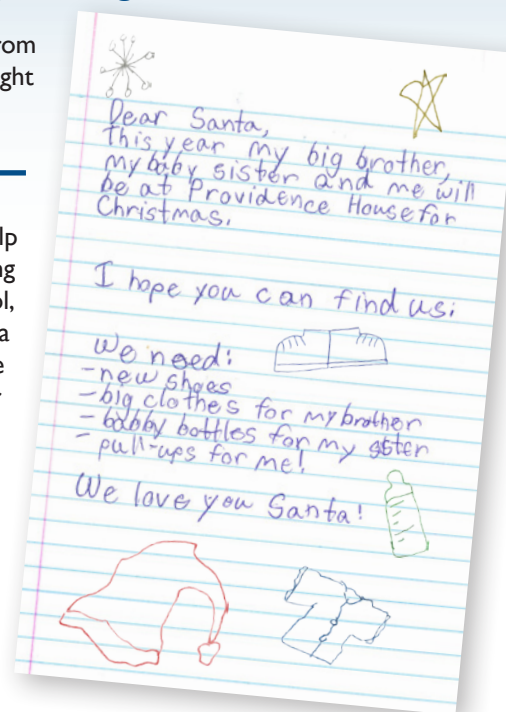 rom
ght
lp
ng
ol,
a
e
Dear Santa,
this year my big brother,
my baby sister and me will
be at Providence House for
Christmas.
I hope you can find us:
We need:
-new shoes
-big clothes for my brother
-babby bottles for my sster
-pull-ups for me!
We love you Santa!